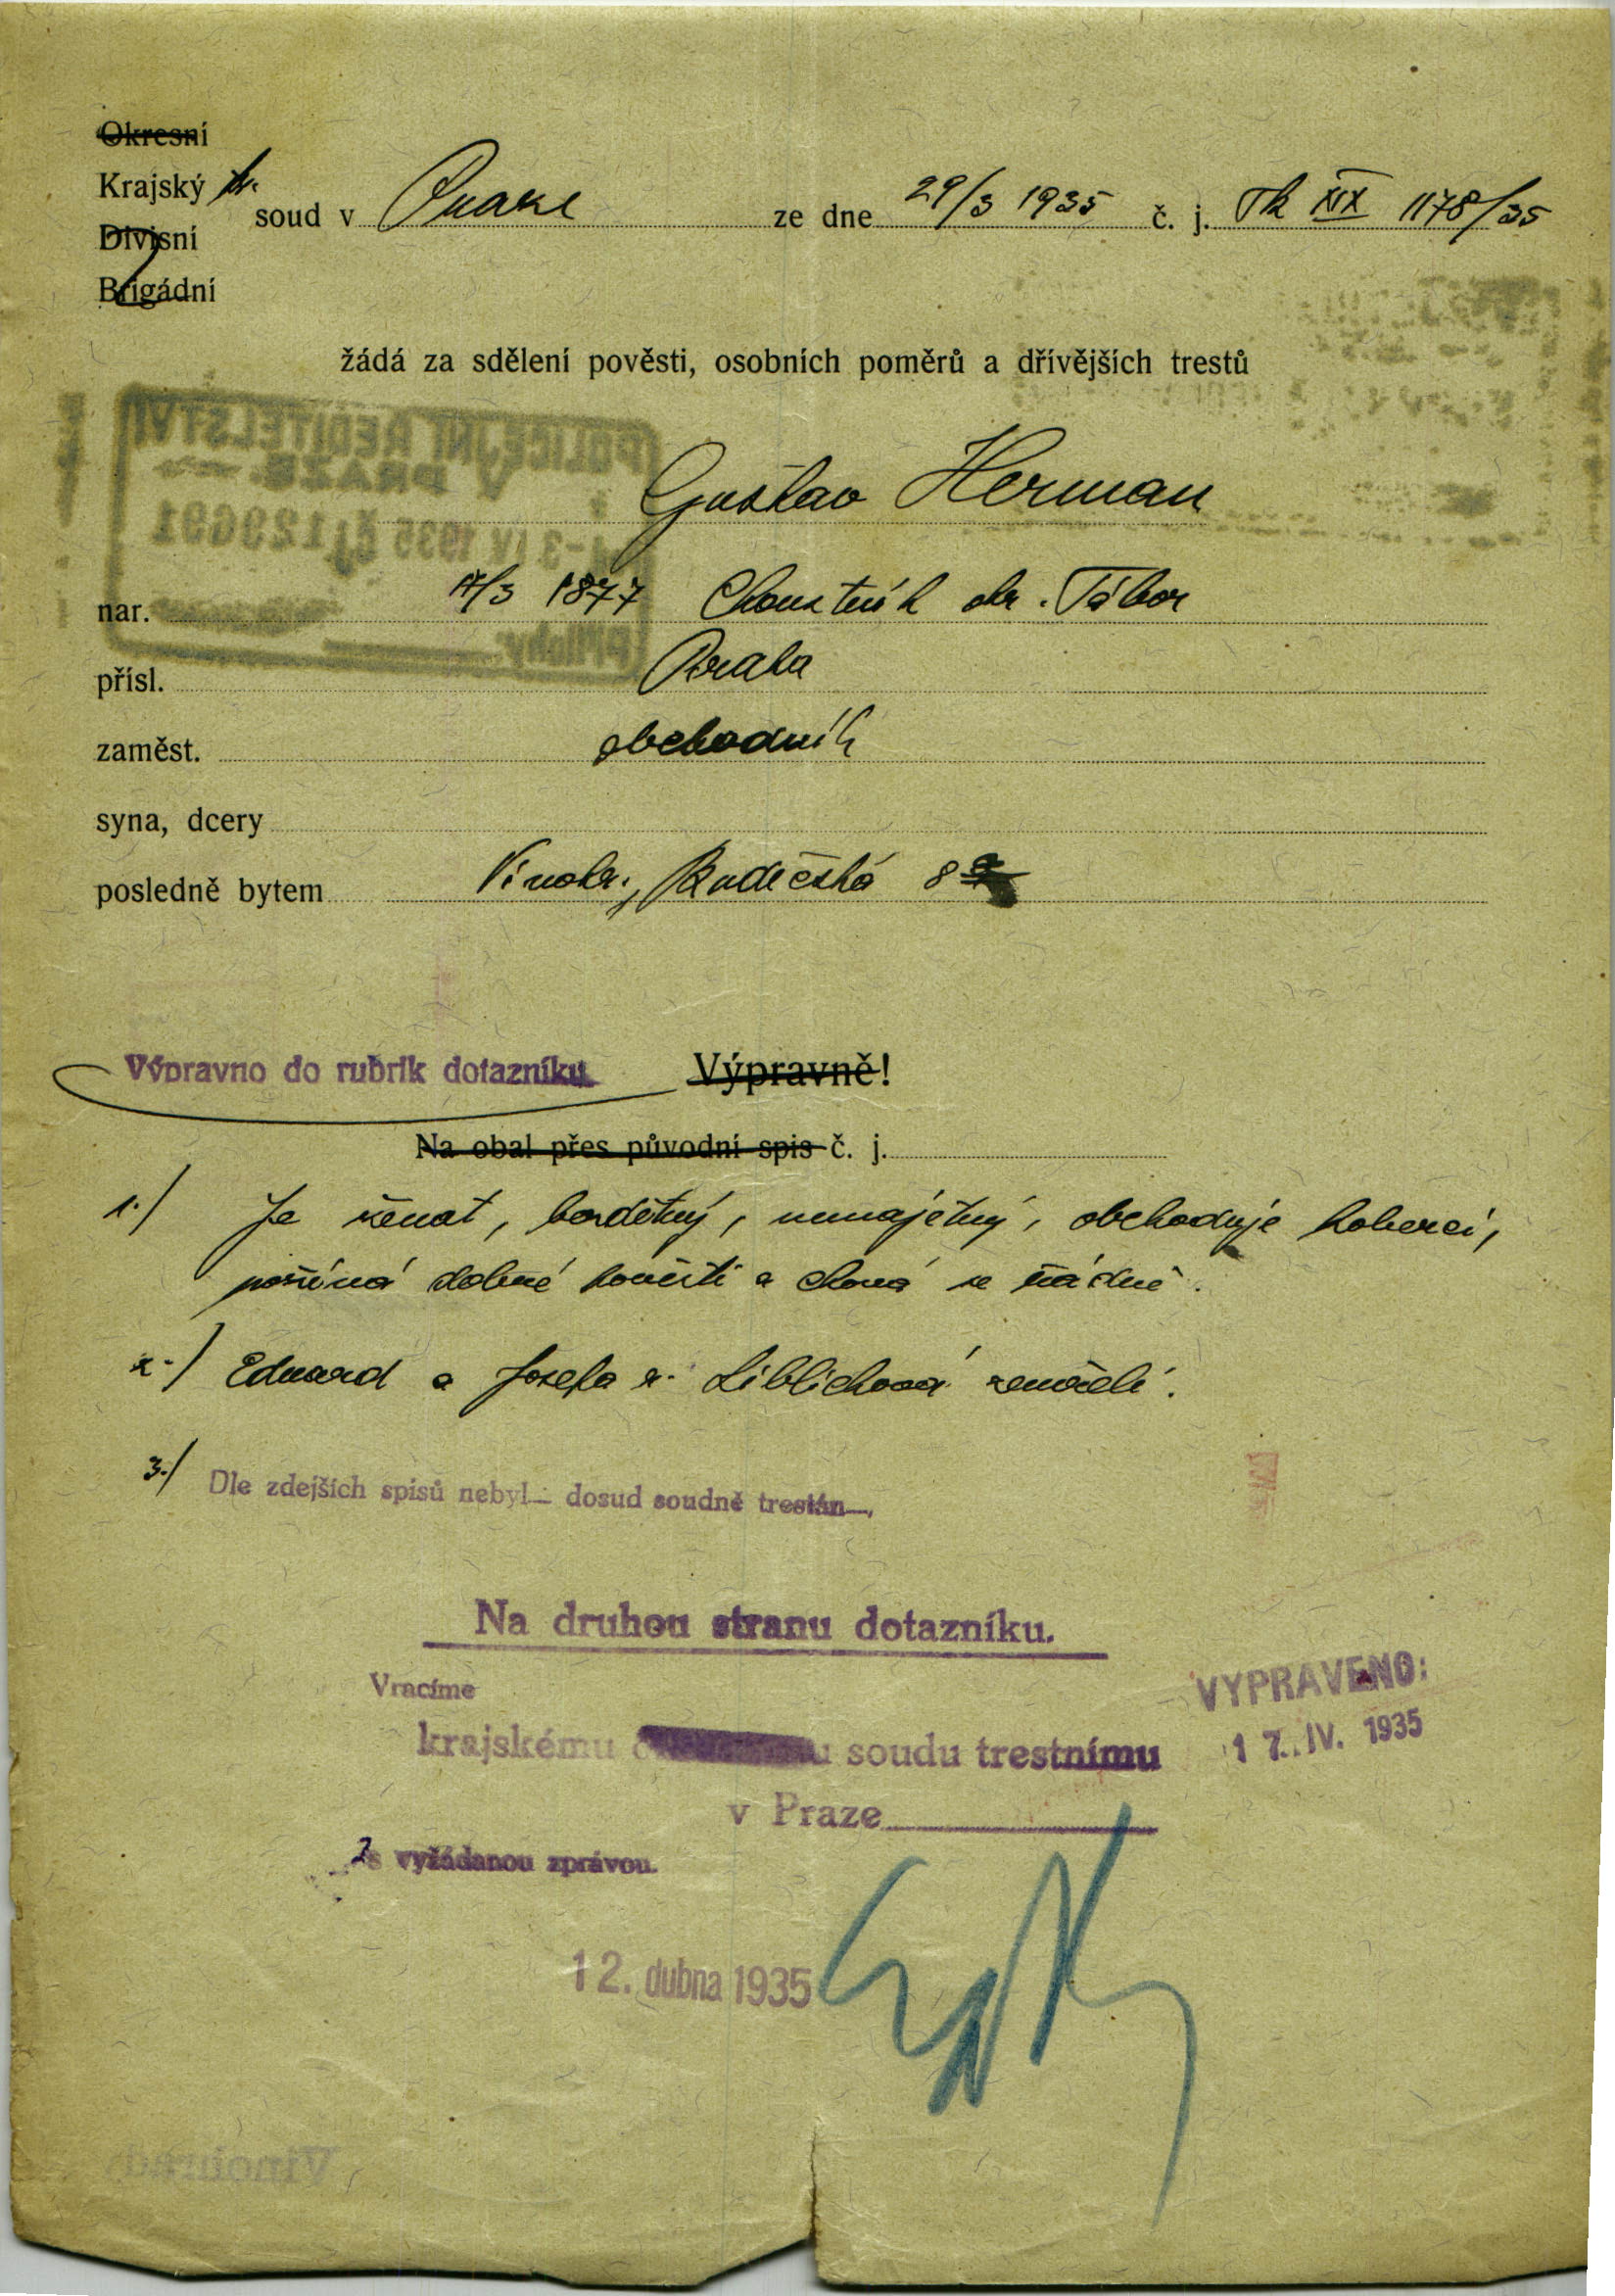 Okresní
Krajský tr.
Divisní
Brigádní
soud v Praze ze dne 29/3 1935 č. j. Tk XIX 1178/35
žádá za sdělení pověsti, osobních poměrů a dřívějších trestů
POLICEJNÍ ŘEDITELSTVÍ
V PRAZE
-3 IV 1935 čj 129691
přílohy
Gustav Herman
nar. 17/3 1877 Choustník okr. Tábor
přísl. Praha
zaměst. obchodník
syna, dcery
posledně bytem Vinohr., Budečská 8
Výpravno do rubrik dotazníku. Výpravně!
Na obal přes původní spis č. j.
1.) Je ženat, bezdětný, nemajetný, obchoduje koberci,
požívá dobré pověsti a chová se řádně.
2.) Eduard a Josefa r. Liblichová zemřeli.
3.) Dle zdejších spisů nebyl dosud soudně trestán
Na druhou stranu dotazníku.
Vracíme
krajskému soudu trestnímu
v Praze
s vyžádanou zprávou.
VYPRAVENO:
17. IV. 1935
12. dubna 1935
Vinohrad